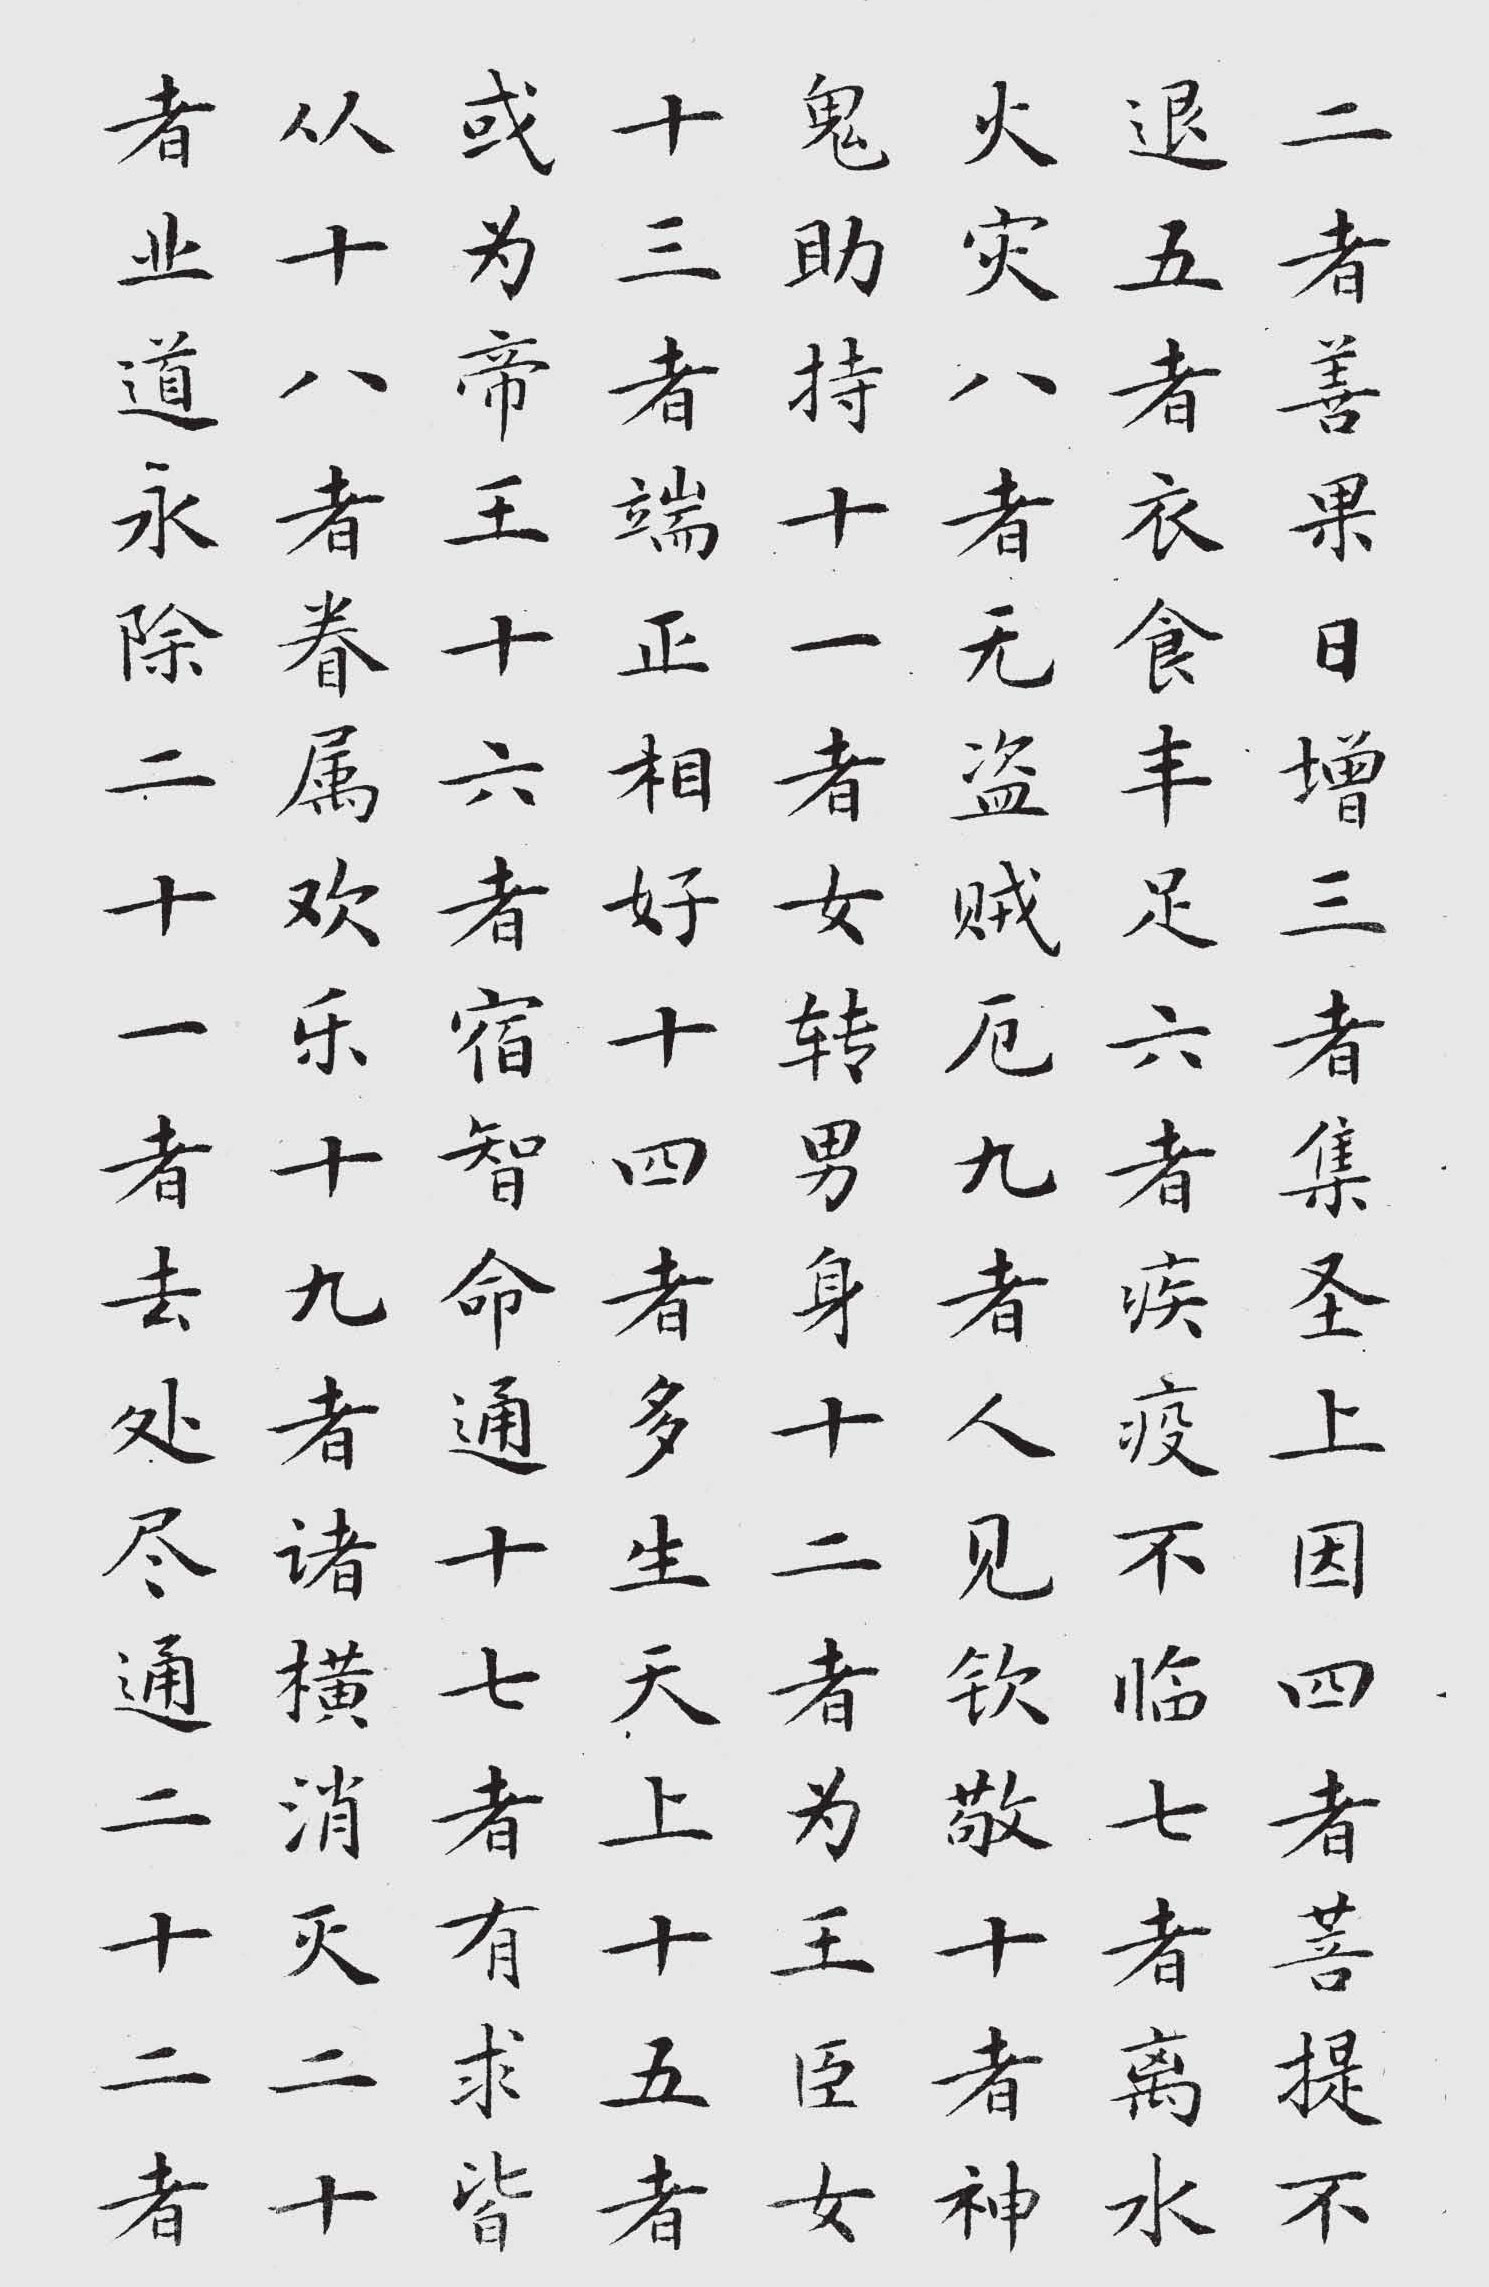 二者善果日增三者集圣上因四者菩提不
退五者衣食丰足六者疾疫不临七者离水
火灾八者无盗贼厄九者人见钦敬十者神
鬼助持十一者女转男身十二者为王臣女
十三者端正相好十四者多生天上十五者
或为帝王十六者宿智命通十七者有求皆
从十八者眷属欢乐十九者诸横消灭二十
者业道永除二十一者去处尽通二十二者